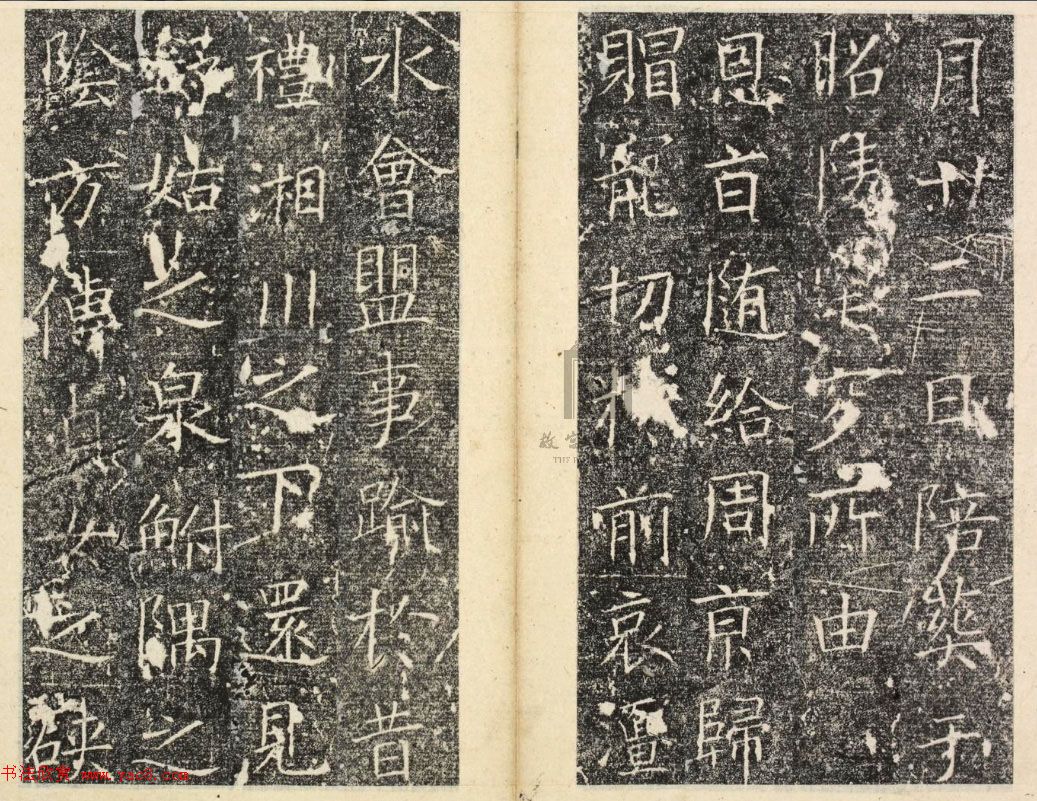 月廿二日陪葬于
昭陵所由
恩旨随給周京歸
賵寵切於前哀
水會盟事踰於昔
禮湘川之下還見
舒姑之泉鮒隅之
陰方傳女之碑
故宮
书法欣赏 www.yac8.com